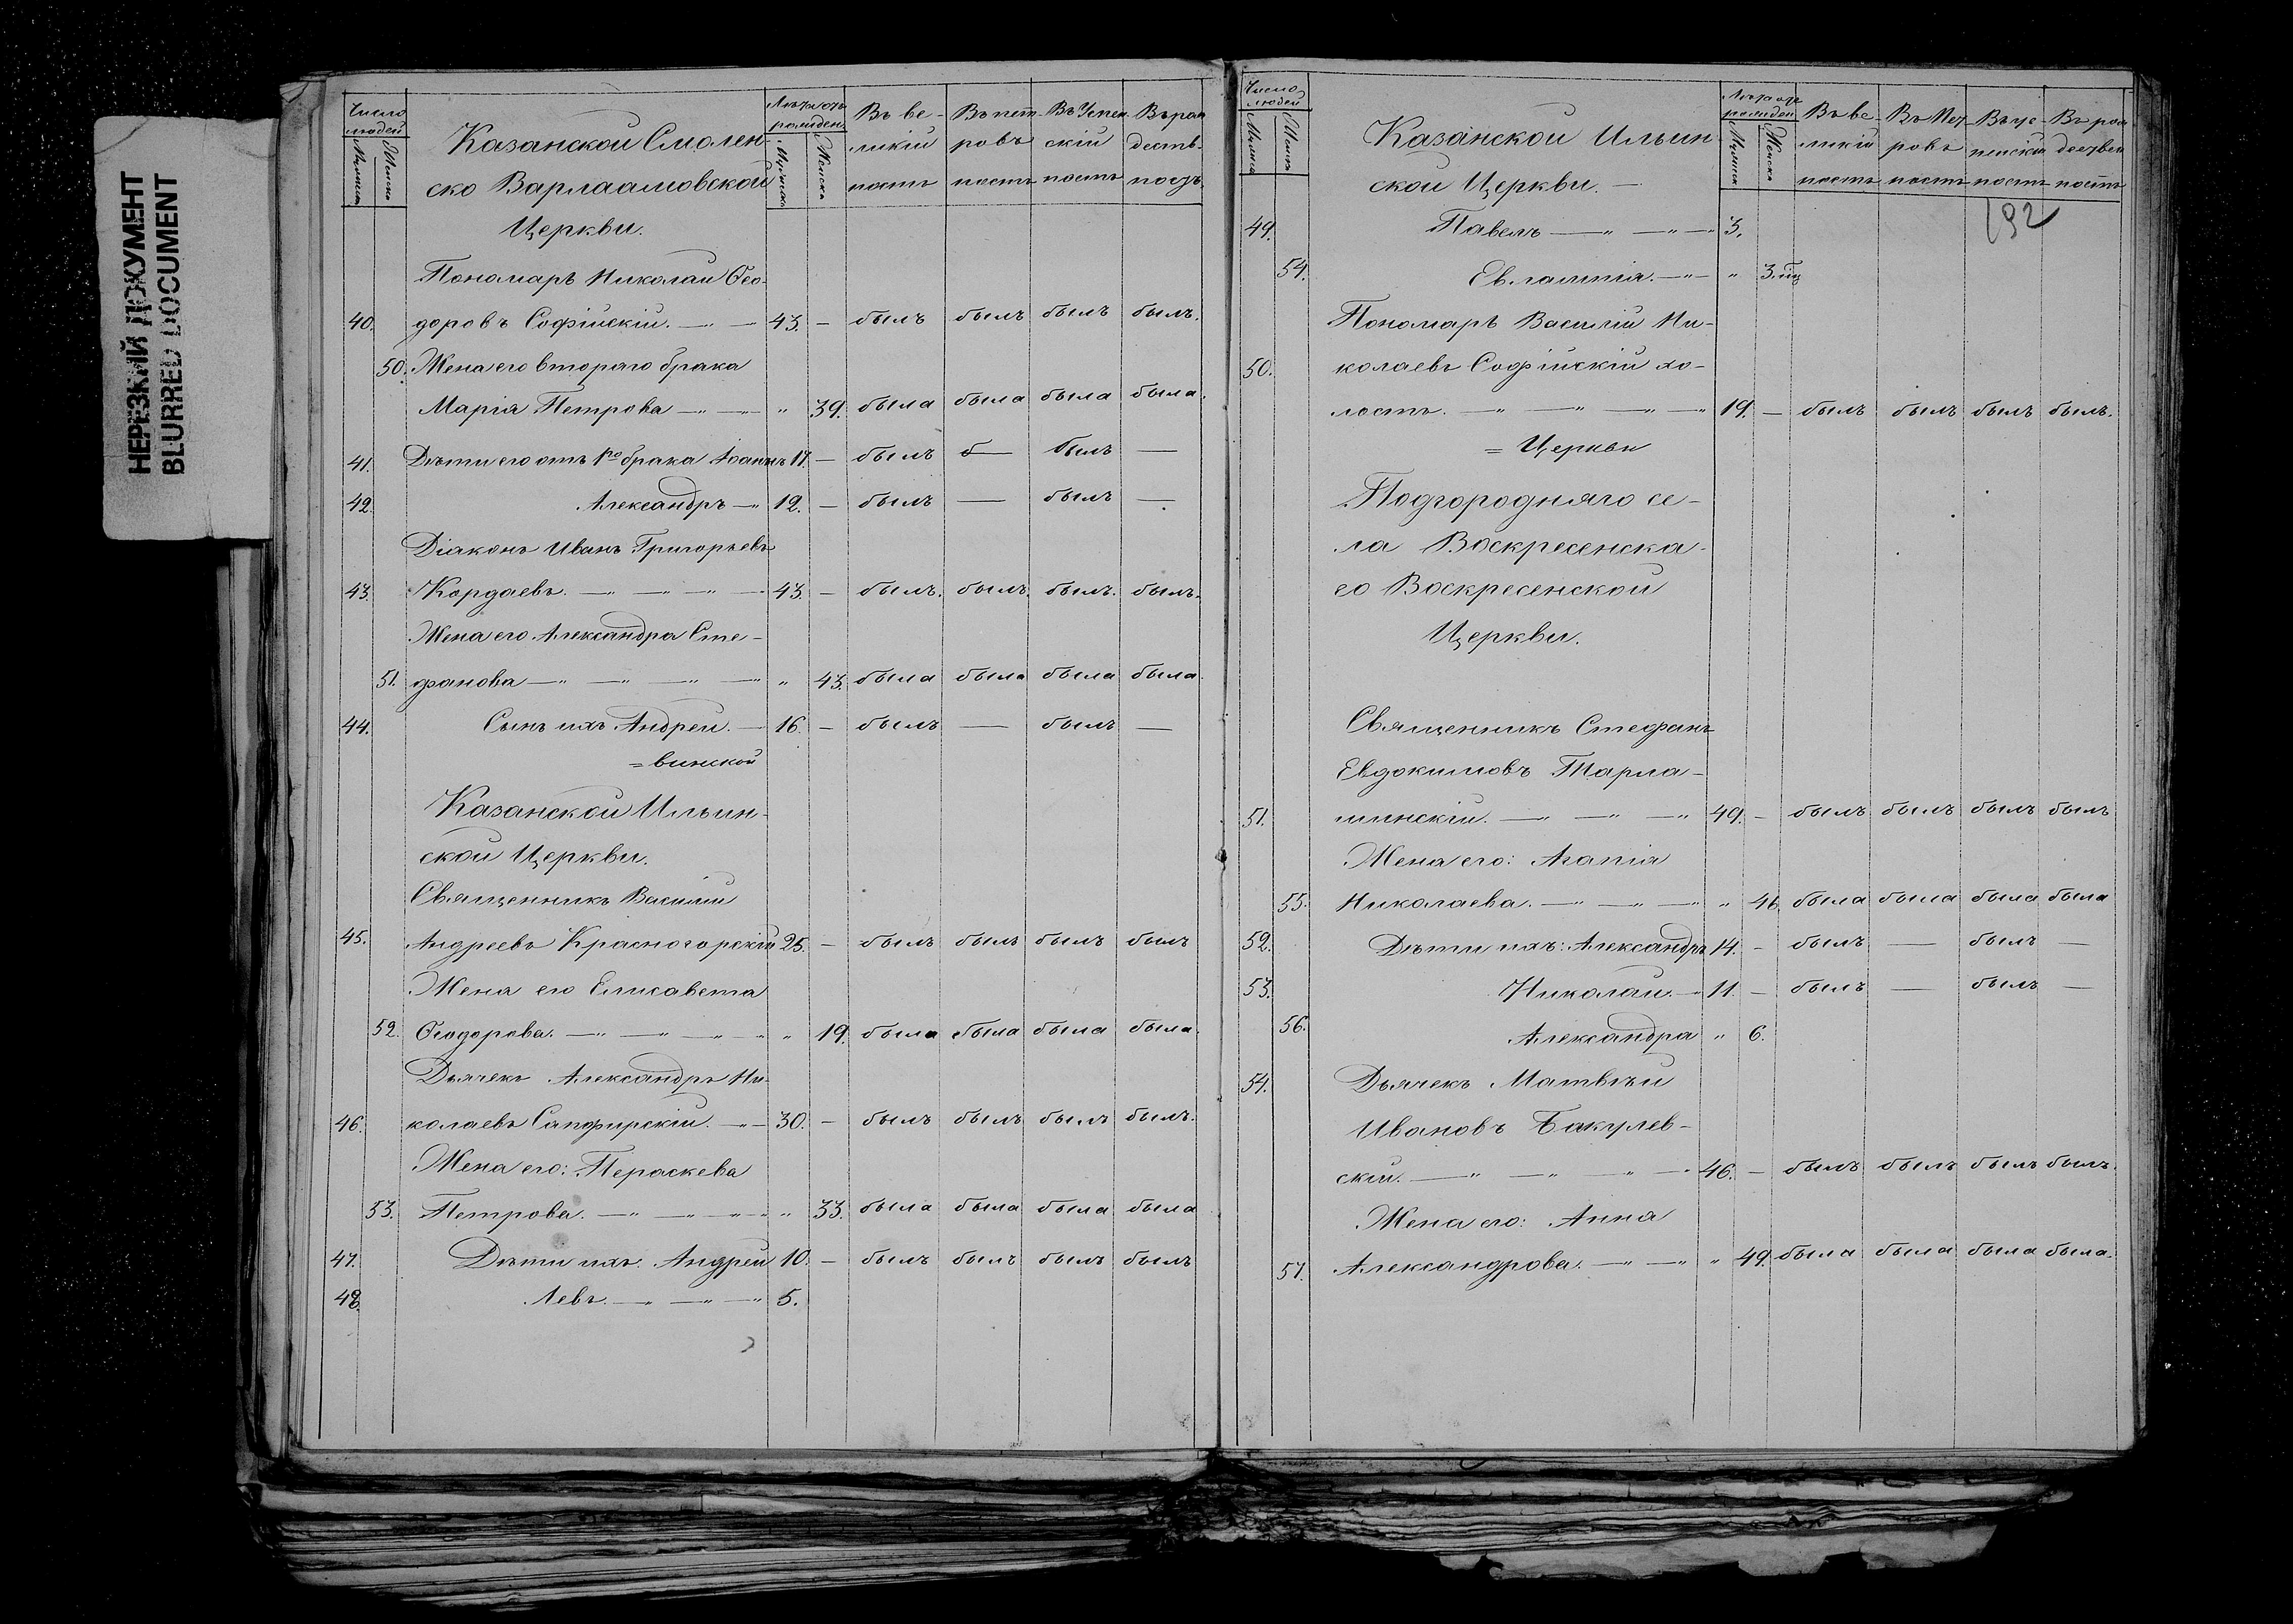 НЕРЕЗКИЙ ДОКУМЕНТ
BLURRED DOCUMENT
Число людей Мужеска Женска Казанской Смолен- Лѣта отъ рожден. Мужеска Женска Въ ве- Въ пет- Въ Успен- Въ рож
ликій ровъ скій деств.
ско Варлаамовской постъ постъ постъ постъ
Церкви.
Пономарь Николай Ѳео-
40. доровъ Софійскій. — 43. — былъ былъ былъ былъ.
50. Жена его втораго брака
Марія Петрова — " — " 39. была была была была.
41. Дѣти его отъ 1го брака Іоаннъ 17. — былъ б— былъ —
42. Александръ — 12. — былъ — былъ —
Діаконъ Иванъ Григорьевъ
43. Кордаевъ. — " — " — 43. — былъ. былъ. былъ. былъ.
Жена его Александра Сте-
51. фанова — " — " — " 43. была была была была.
44. Сынъ ихъ Андрей. — 16. — былъ — былъ —
= винской
Казанской Ильин-
ской Церкви.
Священникъ Василій
45. Андреевъ Красногорскій 25. — былъ былъ былъ былъ
Жена его Елисавета
52. Ѳеодорова. — " — " — " 19. была была была была.
Дьячекъ Александръ Ни-
46. колаевъ Сапфирскій. — 30. — былъ былъ былъ былъ.
Жена его: Пераскева
53. Петрова. — " — " — " 33. была была была была
47. Дѣти ихъ: Андрей 10. — былъ былъ былъ былъ
48. Левъ. — " — " — " 5.
Число людей Мужеска Женска Казанской Ильин- Лѣта отъ рожден Мужеска Женска Въ ве- Въ Пет- Въ ус- Въ рож
ликій ровъ пенскій дествен
ской Церкви. — постъ постъ постъ постъ
192
49. Павелъ — " — " — 3.
54. Евлампія. — " — " 3. мц
Пономарь Василій Ни-
50. колаевъ Софійскій хо-
лостъ. — " — " — " — " 19. — былъ былъ былъ былъ.
= Церкви
Подгородняго се-
ла Воскресенска-
го Воскресенской
Церкви.
Священникъ Стефанъ
Евдокимовъ Тарла-
51. шинскій. — " — " — " 49. — былъ былъ былъ былъ
Жена его: Агапія
55. Николаева. — " — " — " 46. была была была была
52. Дѣти ихъ: Александръ 14. — былъ — былъ —
53. Николай. — 11. — былъ — былъ —
56. Александра " 6.
54. Дьячекъ Матвѣй
Ивановъ Бакулев-
скій. — " — " — " — 46. — былъ былъ былъ былъ.
Жена его: Анна
57. Александрова. — " — " " 49. была была была была.